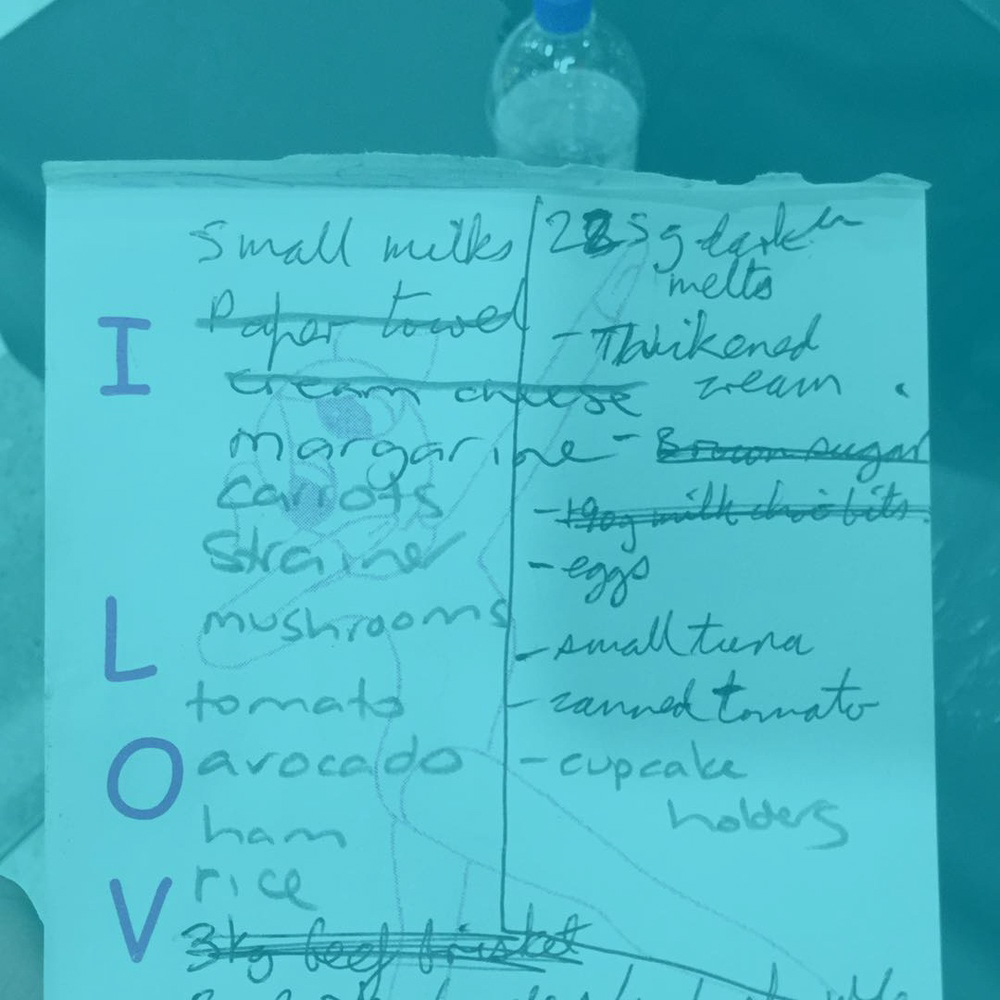 Small milks
Paper towel
cream cheese
margarine
carrots
Strainer
mushrooms
tomato
avocado
ham
rice
3kg beef brisket
225g dark
melts
- Thikened
cream
- Brown sugar
- 190g milk choc bits
- eggs
- small tuna
- canned tomato
- cupcake
holders
I
L
O
V